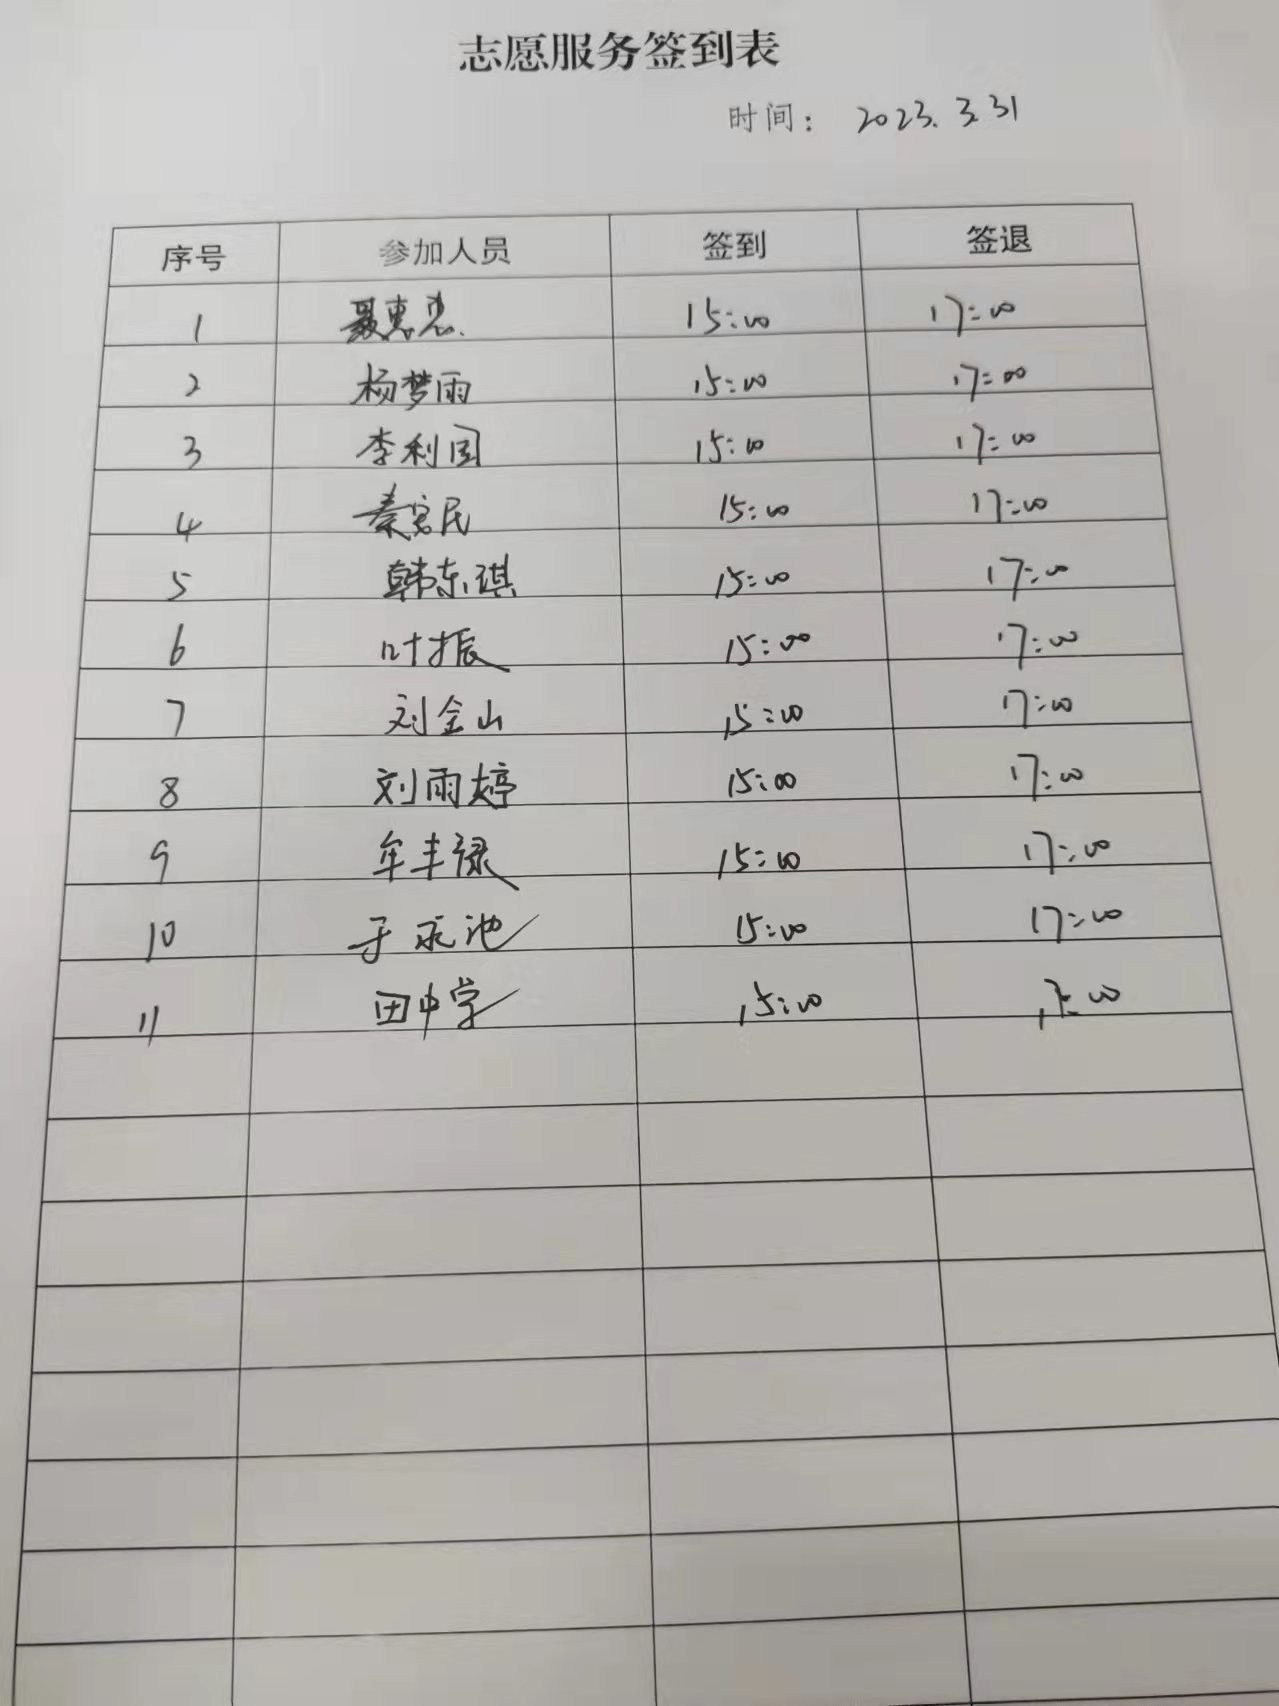 志愿服务签到表
时间： 2023.3.31
序号 参加人员 签到 签退
1 聂惠忠 15:00 17:00
2 杨梦雨 15:00 17:00
3 李利国 15:00 17:00
4 秦宫民 15:00 17:00
5 韩东琪 15:00 17:00
6 叶振 15:00 17:00
7 刘金山 15:00 17:00
8 刘雨婷 15:00 17:00
9 牟丰禄 15:00 17:00
10 于永池 15:00 17:00
11 田中学 15:00 17:00